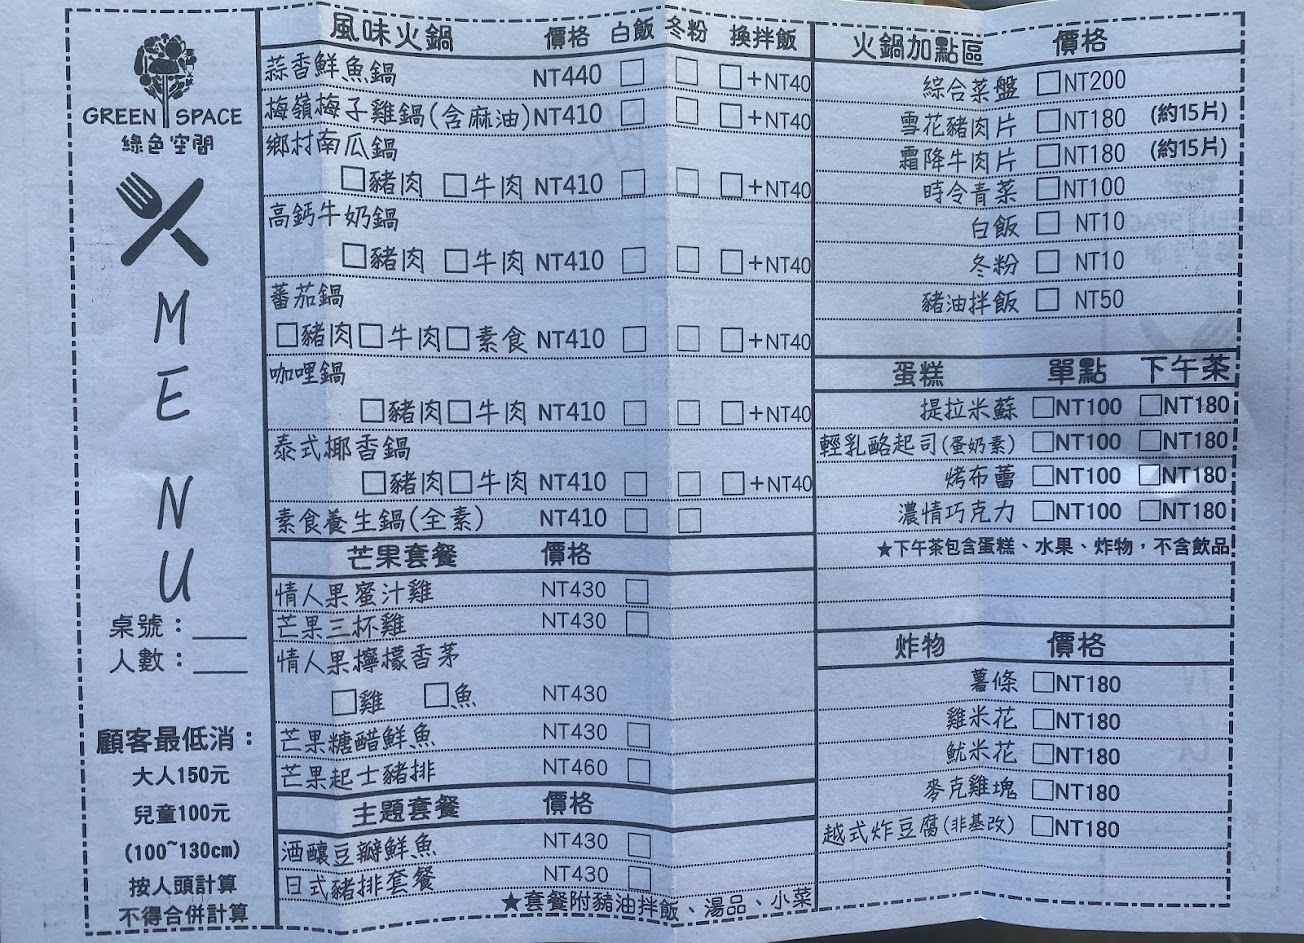 GREEN SPACE
綠色空間
MENU
桌號：___
人數：___
顧客最低消：
大人150元
兒童100元
(100~130cm)
按人頭計算
不得合併計算
風味火鍋 價格 白飯 冬粉 換拌飯
蒜香鮮魚鍋 NT440 □ □ □+NT40
梅嶺梅子雞鍋(含麻油) NT410 □ □ □+NT40
鄉村南瓜鍋
□豬肉 □牛肉 NT410 □ □ □+NT40
高鈣牛奶鍋
□豬肉 □牛肉 NT410 □ □ □+NT40
蕃茄鍋
□豬肉□牛肉□素食 NT410 □ □ □+NT40
咖哩鍋
□豬肉□牛肉 NT410 □ □ □+NT40
泰式椰香鍋
□豬肉□牛肉 NT410 □ □ □+NT40
素食養生鍋(全素) NT410 □ □
芒果套餐 價格
情人果蜜汁雞 NT430 □
芒果三杯雞 NT430 □
情人果檸檬香茅
□雞 □魚 NT430
芒果糖醋鮮魚 NT430 □
芒果起士豬排 NT460 □
主題套餐 價格
酒釀豆瓣鮮魚 NT430 □
日式豬排套餐 NT430 □
★套餐附豬油拌飯、湯品、小菜
火鍋加點區 價格
綜合菜盤 □NT200
雪花豬肉片 □NT180 (約15片)
霜降牛肉片 □NT180 (約15片)
時令青菜 □NT100
白飯 □ NT10
冬粉 □ NT10
豬油拌飯 □ NT50
蛋糕 單點 下午茶
提拉米蘇 □NT100 □NT180
輕乳酪起司(蛋奶素) □NT100 □NT180
烤布蕾 □NT100 □NT180
濃情巧克力 □NT100 □NT180
★下午茶包含蛋糕、水果、炸物，不含飲品
炸物 價格
薯條 □NT180
雞米花 □NT180
魷米花 □NT180
麥克雞塊 □NT180
越式炸豆腐(非基改) □NT180